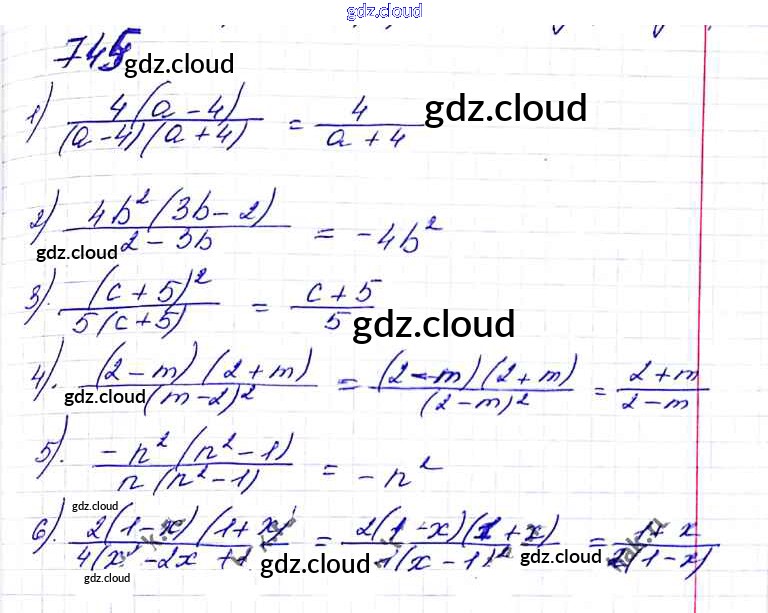 gdz.cloud
745
gdz.cloud
1) 4(a-4)/(a-4)(a+4) = 4/(a+4) gdz.cloud
2) 4b²(3b-2)/(2-3b) = -4b²
gdz.cloud
3). (c+5)²/5(c+5) = (c+5)/5
gdz.cloud
4). (2-m)(2+m)/(m-2)² = (2-m)(2+m)/(2-m)² = (2+m)/(2-m)
gdz.cloud
5). -n²(n²-1)/n(n²-1) = -n²
gdz.cloud
6). 2(1-x)(1+x)/4(x²-2x+1 = 2(1-x)(1+x)/(x-1)² = 1+x/2(1-x)
gdz.cloud gdz.cloud
gdz.cloud